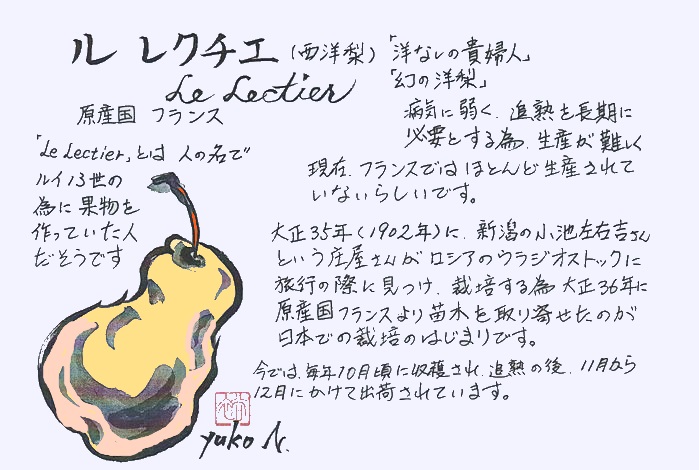 ル レクチエ (西洋梨)「洋なしの貴婦人」
Le Lectier 「幻の洋梨」
原産国 フランス
病気に弱く、追熟を長期に
必要とする為、生産が難しく
現在、フランスではほとんど生産されて
いないらしいです。
「Le Lectier」とは 人の名で
ルイ13世の
為に果物を
作っていた人
だそうです
大正35年(1902年)に、新潟の小池左右吉さん
という庄屋さんがロシアのウラジオストックに
旅行の際に見つけ、栽培する為 大正36年に
原産国フランスより苗木を取り寄せたのが
日本での栽培のはじまりです。
今では、毎年10月頃に収穫され、追熟の後、11月から
12月にかけて出荷されています。
yuko N.